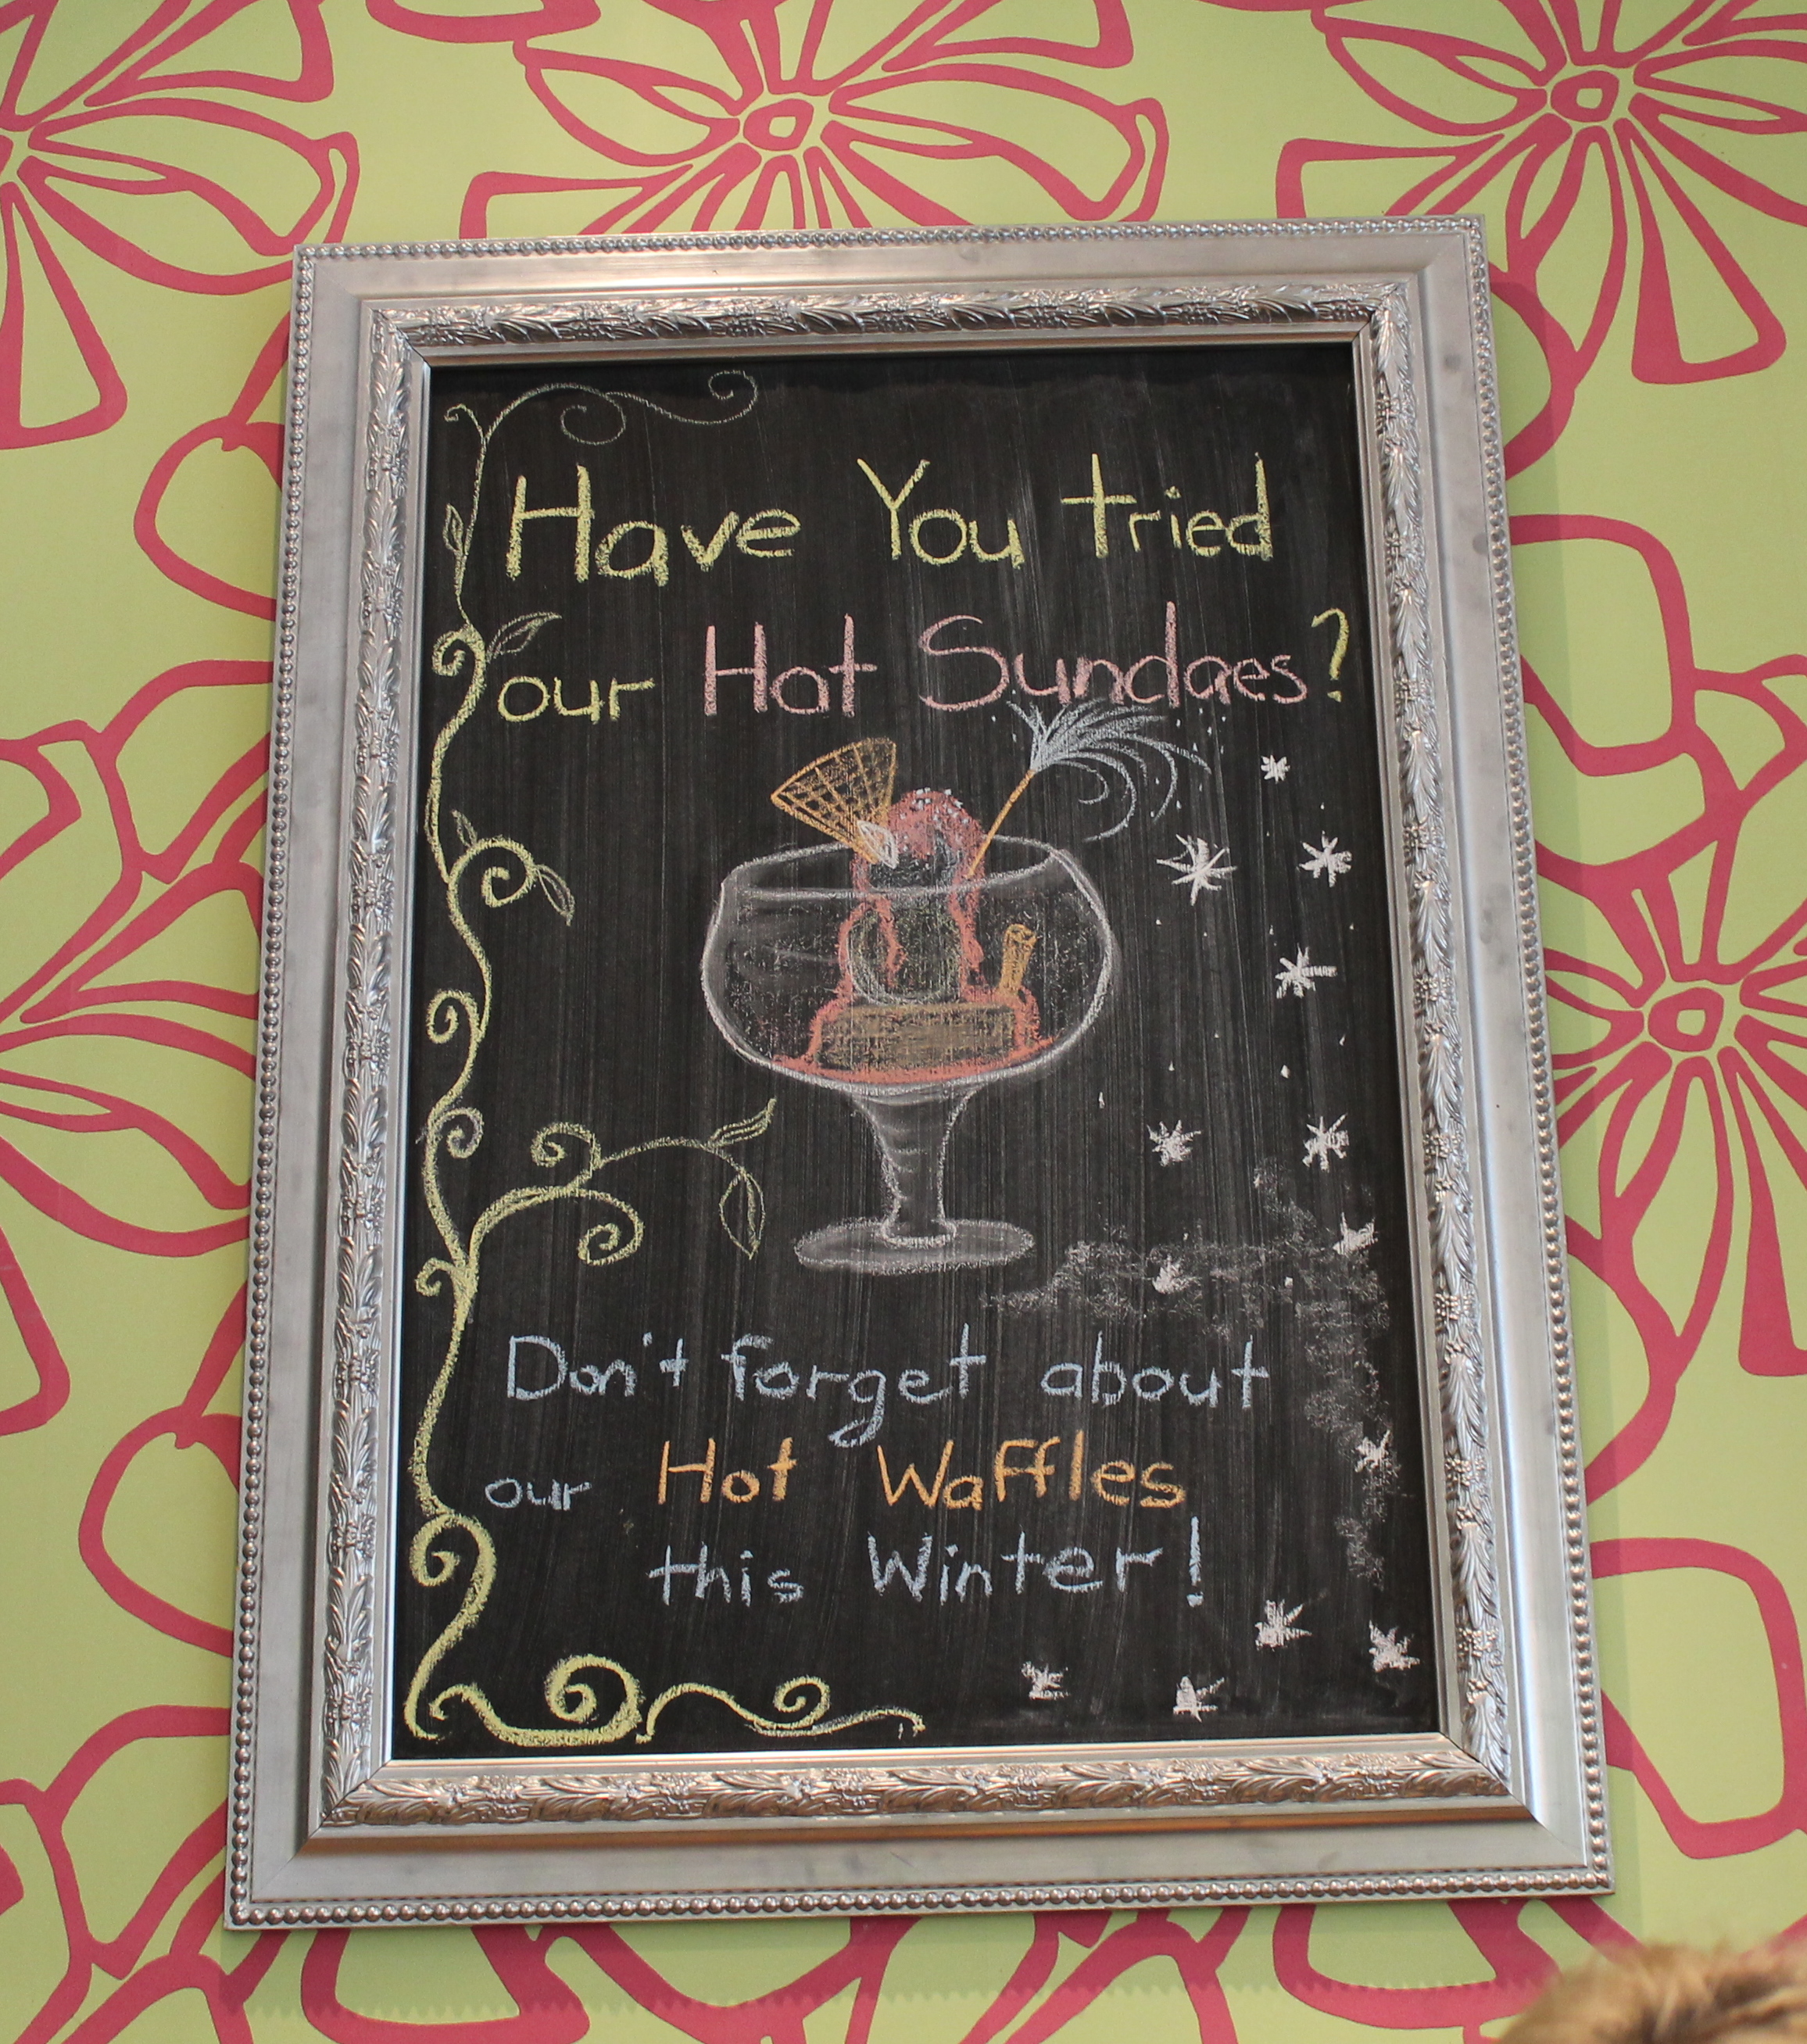 Have You tried
our Hot Sundaes?
Don't forget about
our Hot Waffles
this Winter!